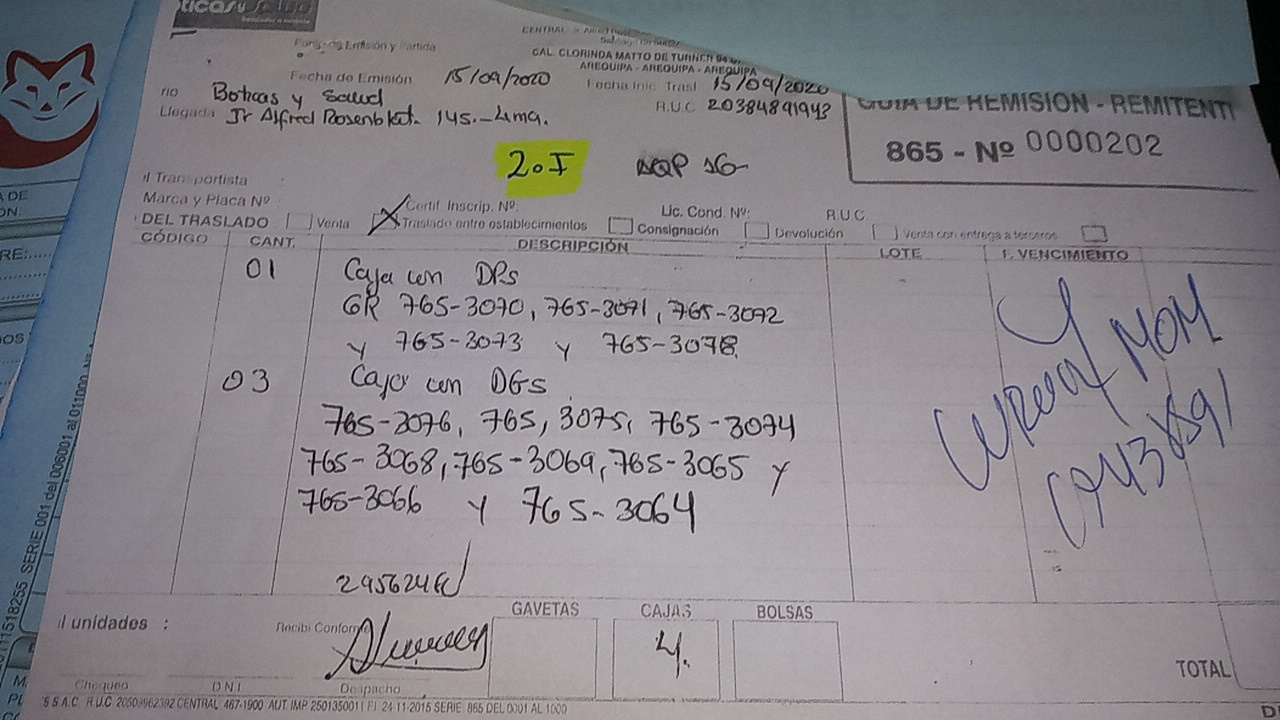 Fecha de Emisión 15/09/2020
CAL. CLORINDA MATTO DE TURNER
AREQUIPA - AREQUIPA - AREQUIPA
Fecha Inic. Trasl 15/09/2020
Boticas y Salud
R.U.C 20384891943
Llegada Jr Alfred Rosenblat. 145.-Lima.
GUIA DE REMISION - REMITENT
865 - Nº 0000202
2.I AQP 16
l Transportista
Marca y Placa Nº Certif. Inscrip. Nº: Lic. Cond. Nº: R.U.C.
DEL TRASLADO Venta Traslado entre establecimientos Consignación Devolución Venta con entrega a terceros
CÓDIGO CANT. DESCRIPCIÓN LOTE F. VENCIMIENTO
01 Caja con DPs
GR 765-3070, 765-3071, 765-3072
y 765-3073 y 765-3078
03 Caja con DGs
765-3076, 765, 3075, 765-3074
765-3068, 765-3069, 765-3065 y
765-3066 y 765-3064
MOM
GAVETAS CAJAS BOLSAS
l unidades : Recibí Conforme 4.
TOTAL
Chequeo D.N.I. Despacho
S S.A.C. R.U.C 20509962392 CENTRAL 467-1900 AUT. IMP. 250135001 F.I. 24-11-2015 SERIE: 865 DEL 0001 AL 1000
SERIE 001 del 006001 al 011000